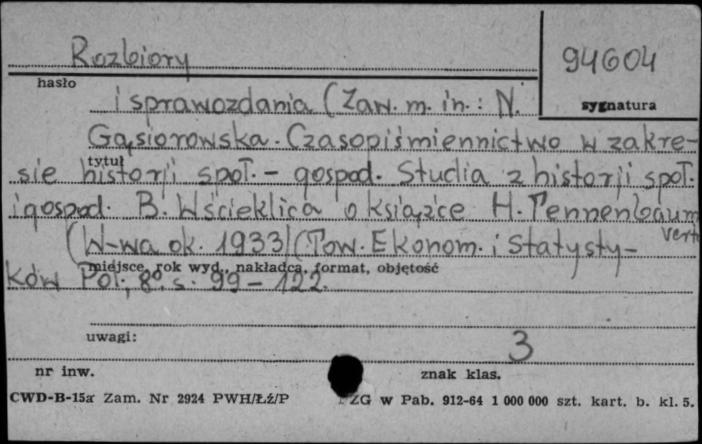 Rozbiory
94604
hasło
i sprawozdania (Zaw. m. in.: N.
sygnatura
Gąsiorowska. Czasopiśmiennictwo w zakre-
sie historji społ. - gospod. Studia z historji społ.
tytuł
i gospod. B. Wścieklica o książce H. Tennenbaum
(W-wa ok. 1933) (Tow. Ekonom. i Statysty-
verte
miejsce, rok wyd., nakładca, format, objętość
ków Pol., 8°, s. 99 - 122.
uwagi:
3
nr inw.
znak klas.
CWD-B-15a Zam. Nr 2924 PWH/Łź/P
ZG w Pab. 912-64 1 000 000 szt. kart. b. kl. 5.